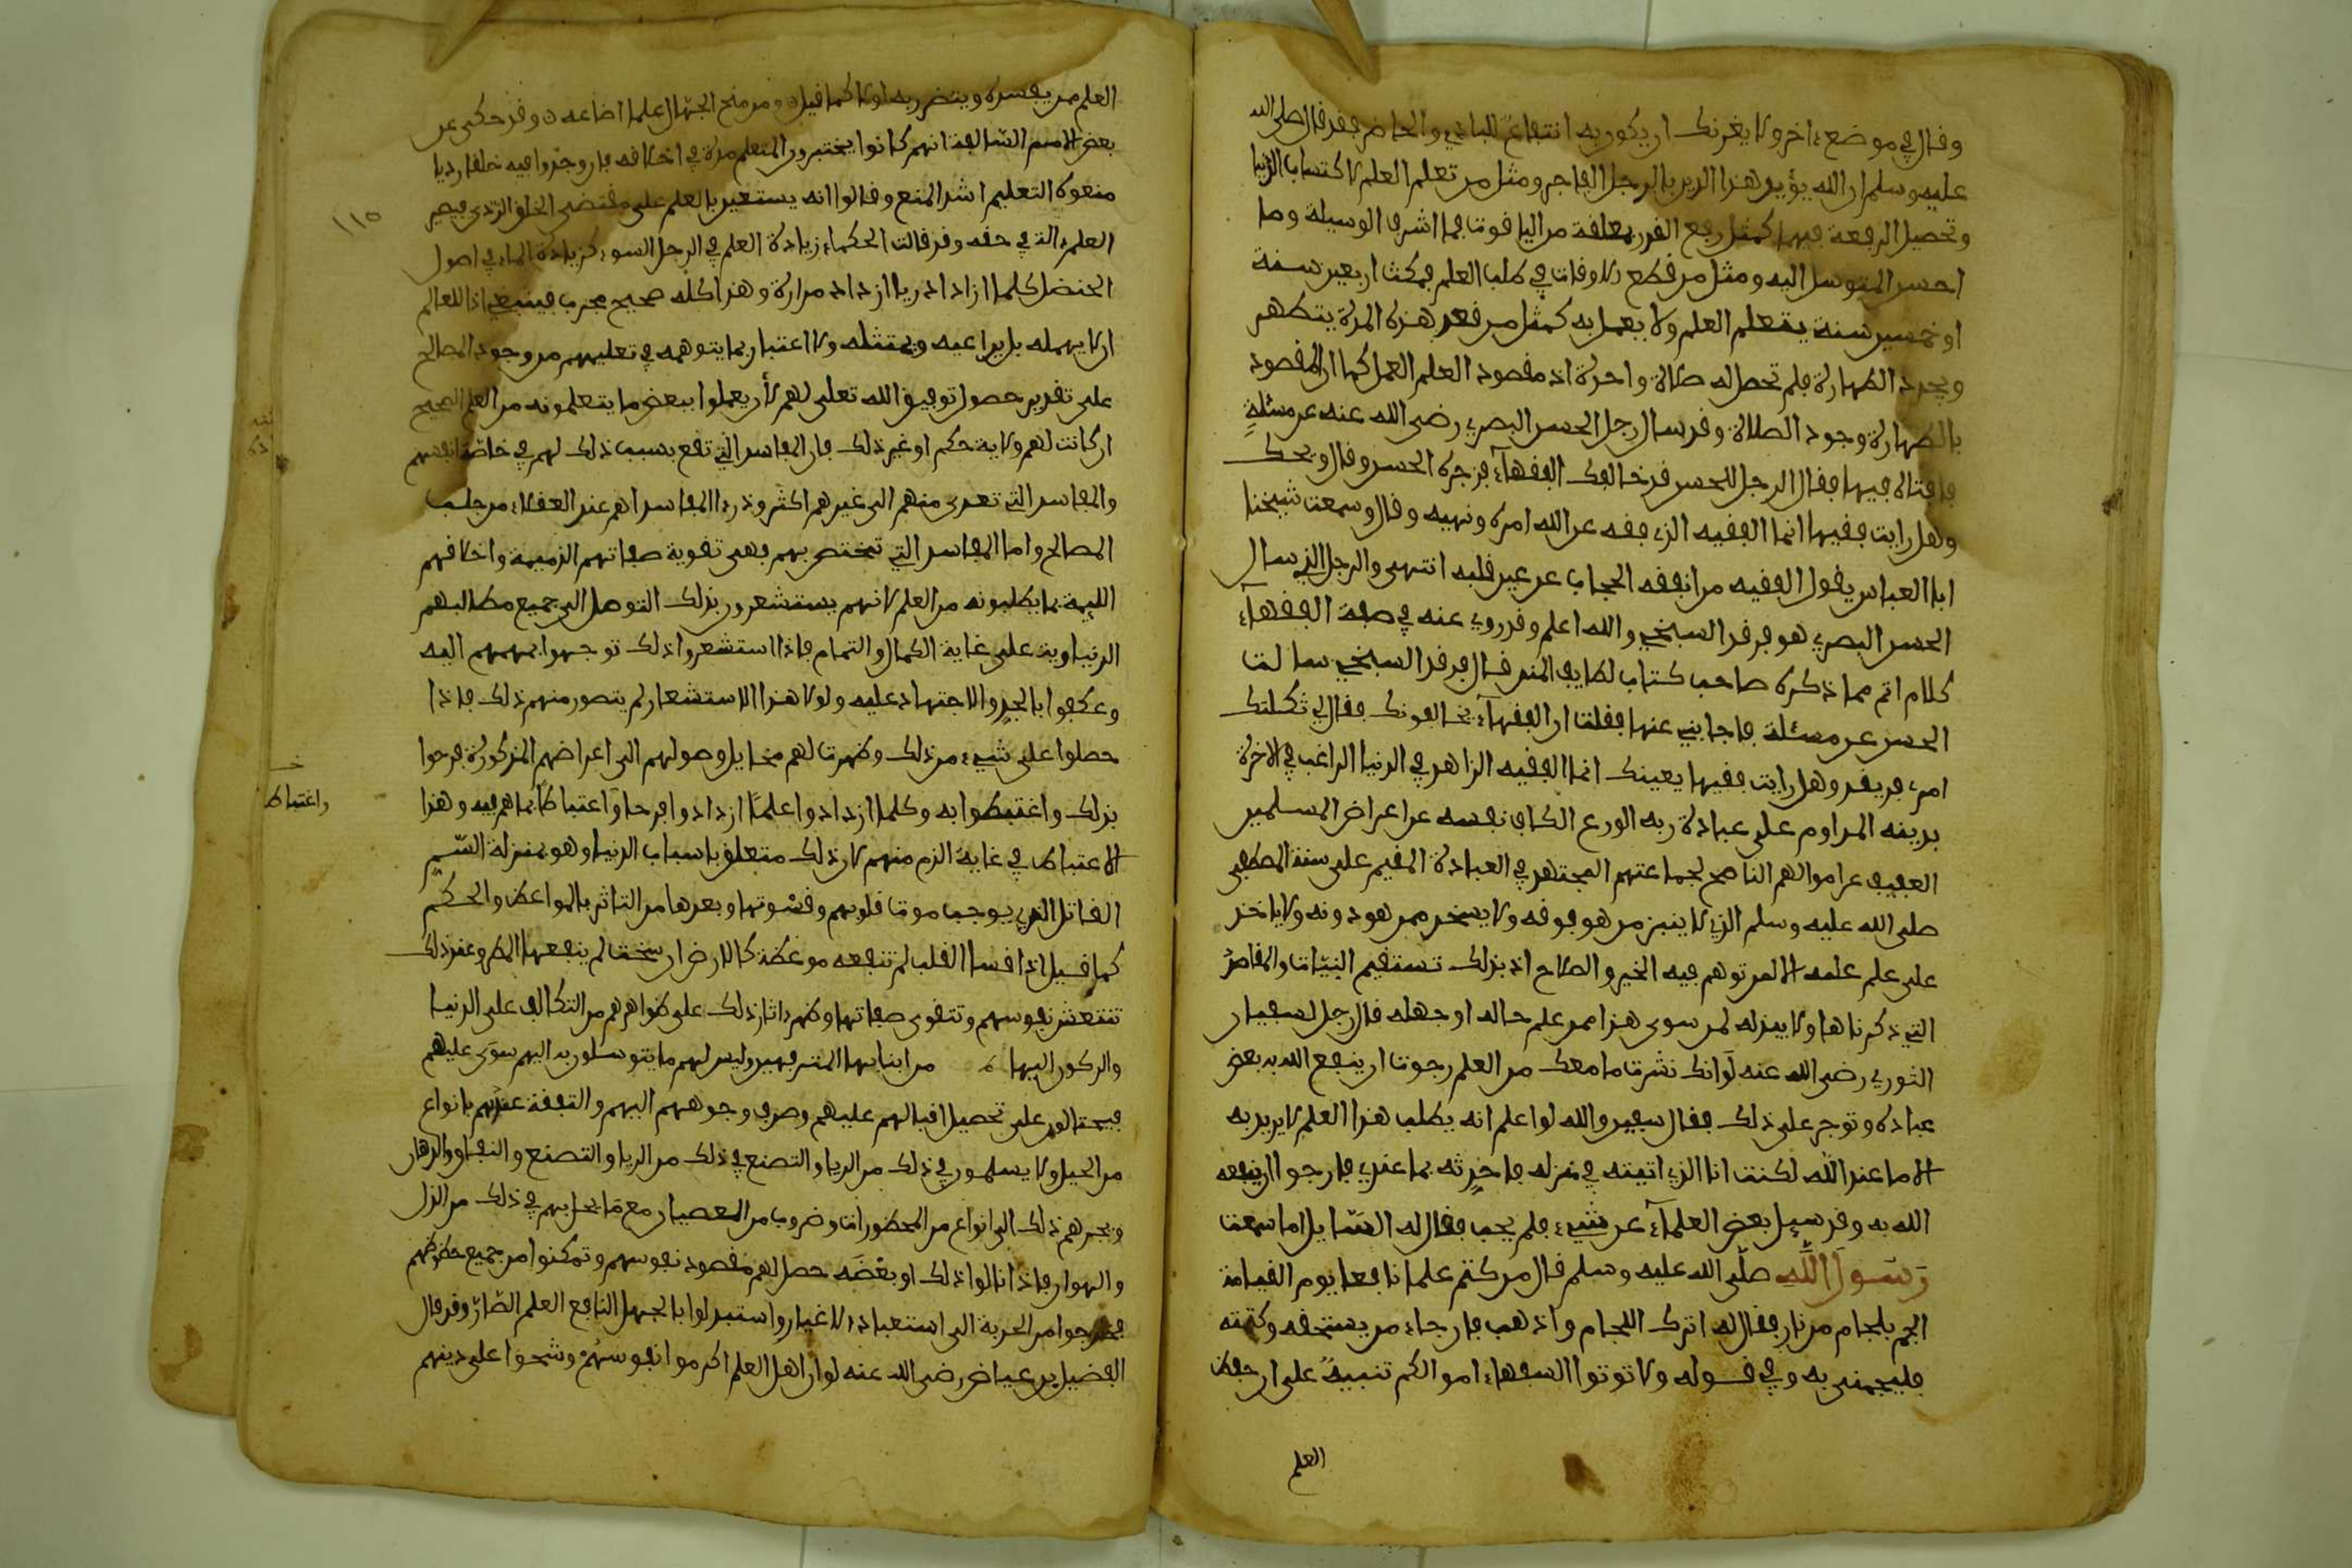 وقال في موضع ءاخر ولا يغرنك ان يكون به انتفاع للبادي والحاضر فقد قال صلى الله
عليه وسلم ان الله يؤيد هذا الدين بالرجل الفاجر ومثل من تعلم العلم لاكتساب الدنيا
وتحصيل الرفعة فيها كمثل رفع القذر بملعقة من الياقوت فما اشرف الوسيلة وما
اخس المتوسل اليه ومثل من قطع الاوقات في طلب العلم فمكث اربعين سنة
او خمسين سنة يتعلم العلم ولا يعمل به كمثل من قعد هذه المدة يتطهر
ويجدد الطهارة فلم تحصل له صلاة واحدة اذ مقصود العلم العمل كما ان المقصود
بالطهارة وجود الصلاة وقد سال رجل الحسن البصري رضى الله عنه عن مسئلة
فافتاه فيها فقال الرجل للحسن قد خالفك الفقهآء فزجره الحسن وقال ويحك
وهل رايت فقيها انما الفقيه الذي فقه عن الله امره ونهيه وقال وسمعت شيخنا
ابا العباس يقول الفقيه من انفقه الحجاب عن عين قلبه انتهى والرجل الذي سال
الحسن البصري هو فرقد السبخي والله اعلم وقد روي عنه في صفة الفقهآء
كلام اتم مما ذكره صاحب كتاب لطايف المنن قال فرقد السبخي سالت
الحسن عن مسئلة فاجابني عنها فقلت ان الفقهآء يخالفونك فقال لي ثكلتك
امك فريقد وهل رايت فقيها بعينك انما الفقيه الزاهد في الدنيا الراغب في الاخرة
بدينه المداوم على عبادة ربه الورع الكاف نفسه عن اعراض المسلمين
العفيف عن اموالهم الناصح لجماعتهم المجتهد في العبادة المقيم على سنة المصطفى
صلى الله عليه وسلم الذي لا ينبز من هو فوقه ولا يسخر ممن هو دونه ولا ياخذ
على علم علمه الا لمن توهم فيه الخير والصلاح اذ بذلك تستقيم النيات والمقاصد
التي ذكرناها ولا يبذله لمن سوى هذا ممن علم حاله او جهله قال رجل لسفيان
الثوري رضى الله عنه لو انك نشرت ما معك من العلم رجوت ان ينفع الله به بعض
عباده وتوجر على ذلك فقال سفين والله لو اعلم انه يطلب هذا العلم لا يريد به
الا ما عند الله لكنت انا الذي اتيته في منزله فاحدثه بما عندي فارجوا ان ينفعه
الله به وقد سيل بعض العلمآء عن شيء فلم يجب فقال له السايل اما سمعت
رسول الله صلى الله عليه وسلم قال من كتم علما نافعا يوم القيامة
الجم بلجام من نار فقال له اترك اللجام واذهب فان جاء من يستحقه وكتمته
فليجمني به وفي قوله ولا توتوا السفهاء اموالكم تنبيه على ان حفظ
العلم
العلم ممن يفسده ويتضرر به اولا كما قيل ومن منح الجهال علما اضاعه وقد حكى عن
بعض الامم السالفة انهم كانوا يختبرون المتعلم مدة في اخلاقه فان وجدوا فيه خلقا رديا
منعوه التعليم اشد المنع وقالوا انه يستعين بالعلم على مقتضى الخلق الردي فيصير
العلم ءالة في حقه وقد قالت الحكماء زيادة العلم في الرجل السوء كزيادة الماء في اصول
الحنضل كلما ازداد ريا ازداد مرارة وهذا كله صحيح مجرب فينبغي اذا للعالم
ان لا يهمله بل يراعيه ويمتثله ولا اعتبار بما يتوهمه في تعليمهم من وجود المصالح
على تقدير حصول توفيق الله تعلى لهم لأن يعملوا ببعض ما يتعلمونه من العلم الصحيح
ان كانت لهم ولاية حكم او غير ذلك فان المفاسد التي تقع بسبب ذلك لهم في خاصة انفسهم
والمفاسد التي تعدى منهم الى غيرهم اكثر ودرء المفاسد اهم عند العقلاء من جلب
المصالح واما المفاسد التي تختص بهم فهى تقوية صفاتهم الذميمة واخلاقهم
الليمة بما يطلبونه من العلم لانهم يستشعرون بذلك التوصل الى جميع مطالبهم
الدنياوية على غاية الكمال والتمام فاذا استشعروا ذلك توجهوا بهممهم اليه
وعكفوا بالجد والاجتهاد عليه ولولا هذا الاستشعار لم يتصور منهم ذلك فاذا
حصلوا على شيء من ذلك وظهرت لهم مخايل وصولهم الى اغراضهم المذكورة فرحوا
بذلك واغتبطوا به وكلما ازدادوا علما ازدادوا فرحا واغتباطا بما هم فيه وهذا
واغتباط
الاغتباط في غاية الذم منهم لان ذلك متعلق باسباب الدنيا وهو بمنزلة السم
القاتل الذي يوجب موت قلوبهم وقسوتها وبعدها من التاثر بالمواعظ والحكم
كما قيل اذا قسا القلب لم تنفعه موعظة كالارض ان سبخت لم ينفعها المطر وعند ذلك
تنتعش نفوسهم وتتقوى صفاتها وظهر ءاثار ذلك على ظواهرهم من التكالب على الدنيا
والركون اليها من ابنابها المترفهين وليس لهم ما يتوسلون به اليهم سوى علمهم
فيحتالون على تحصيل اقبالهم عليهم وصرف وجوههم اليهم والتفقة عندهم بانواع
من الحيل ولا يسلمون في ذلك من الريا والتصنع في ذلك من الريا والتصنع والنفاق والدهان
ويجرهم ذلك الى انواع من المحظورات وضروب من العصيان مع ما يحل بهم في ذلك من الذل
والهوان فاذا نالوا ذلك او بعضه حصل لهم مقصود نفوسهم وتمكنوا من جميع حظوظهم
فخرجوا من الحرية الى استعباد الاغيار واستبدلوا بالجهل النافع العلم الضار وقد قال
الفضيل بن عياض رضى الله عنه لو ان اهل العلم اكرموا نفوسهم وشحوا على دينهم
١١٥